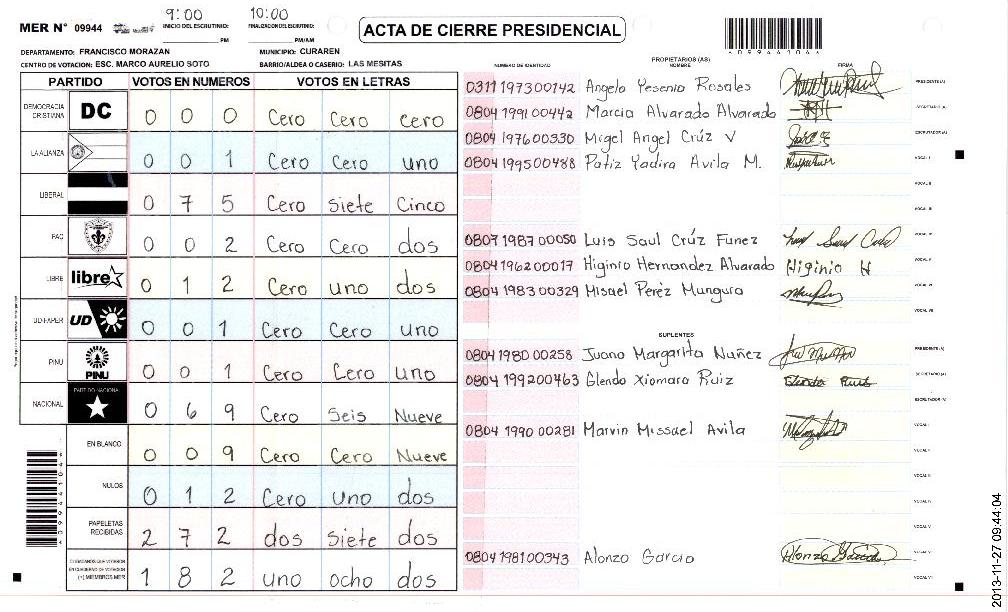 9:00 10:00
MER N° 09944 INICIO DEL ESCRUTINIO: PM FINALIZACION DEL ESCRUTINIO: PM/AM
ACTA DE CIERRE PRESIDENCIAL
DEPARTAMENTO: FRANCISCO MORAZAN MUNICIPIO: CURAREN
CENTRO DE VOTACION: ESC. MARCO AURELIO SOTO BARRIO/ALDEA O CASERIO: LAS MESITAS
PARTIDO VOTOS EN NUMEROS VOTOS EN LETRAS
DEMOCRACIA CRISTIANA DC 0 0 0 Cero Cero cero
LA ALIANZA 0 0 1 Cero Cero uno
LIBERAL 0 7 5 Cero Siete Cinco
PAC 0 0 2 Cero Cero dos
LIBRE libre 0 1 2 Cero uno dos
UD-FAPER UD 0 0 1 Cero Cero uno
PINU PINU 0 0 1 Cero Cero uno
NACIONAL PARTIDO NACIONAL 0 6 9 Cero Seis Nueve
EN BLANCO 0 0 9 Cero Cero Nueve
NULOS 0 1 2 Cero uno dos
PAPELETAS RECIBIDAS 2 7 2 dos siete dos
CIUDADANOS QUE VOTARON EN CUADERNO DE VOTACION (+) MIEMBROS MER 1 8 2 uno ocho dos
NUMERO DE IDENTIDAD PROPIETARIOS (AS) NOMBRE FIRMA
0311 1973 00142 Angela Yesenia Rosales PRESIDENTE (A)
0804 1991 00442 Marcia Alvarado Alvarado SECRETARIO (A)
0804 1976 00330 Migel Angel Crúz V ESCRUTADOR (A)
0804 1995 00488 Patiz Yadira Avila M. VOCAL I
VOCAL II
VOCAL III
0807 1987 00050 Luis Saul Crúz Funez VOCAL IV
0804 1962 00017 Higinio Hernandez Alvarado Higinio H VOCAL V
0804 1983 00329 Misael Peréz Munguia VOCAL VI
VOCAL VII
SUPLENTES
0804 1980 00258 Juana Margarita Nuñez PRESIDENTE (A)
0804 1992 00463 Glenda Xiomara Ruiz SECRETARIO (A)
ESCRUTADOR (A)
0804 1990 00281 Marvin Missael Avila VOCAL I
VOCAL II
VOCAL III
VOCAL IV
VOCAL V
0804 1981 00343 Alonzo Garcia Alonzo Garcia VOCAL VI
VOCAL VII
2013-11-27 09:44:04